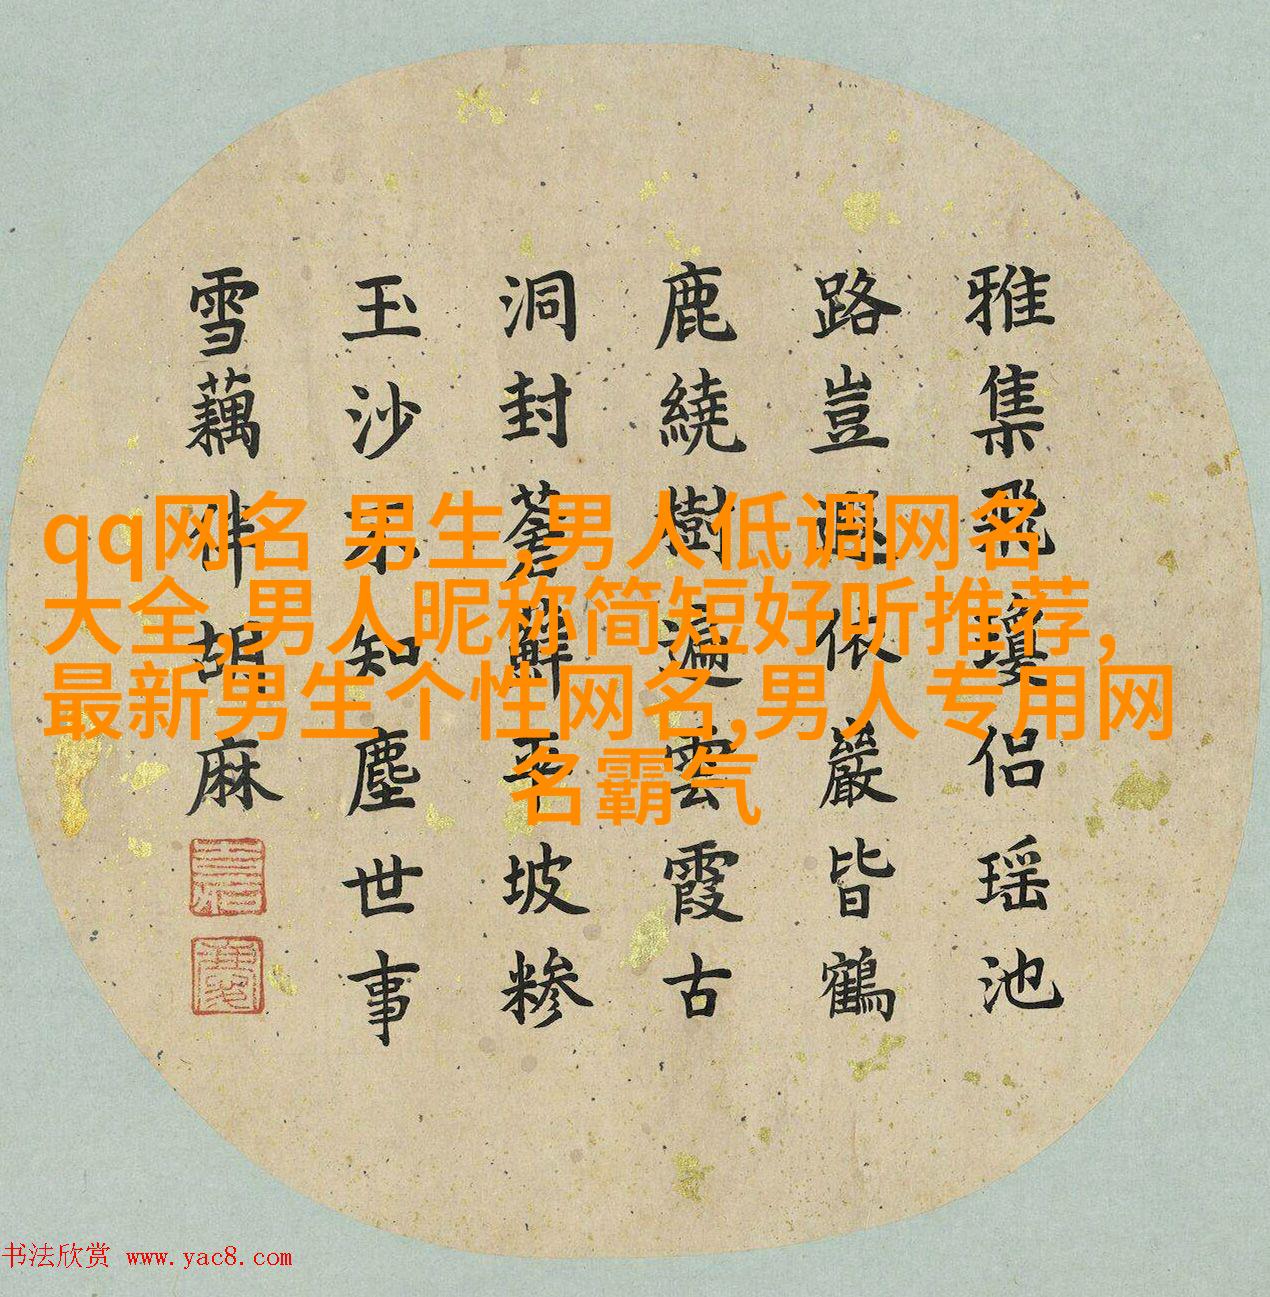 qq网名 男生,男人低调网名
大全,男人昵称简短好听推荐,
最新男生个性网名,男人专用网
名霸气
雅集飛瓊侶瑶池
路豈遐依巖皆鶴
鹿繞樹遍雲霞古
洞封蒼蘚平坡糁
玉沙不知塵世事
雪藕伴胡麻
书法欣赏 www.yac8.com